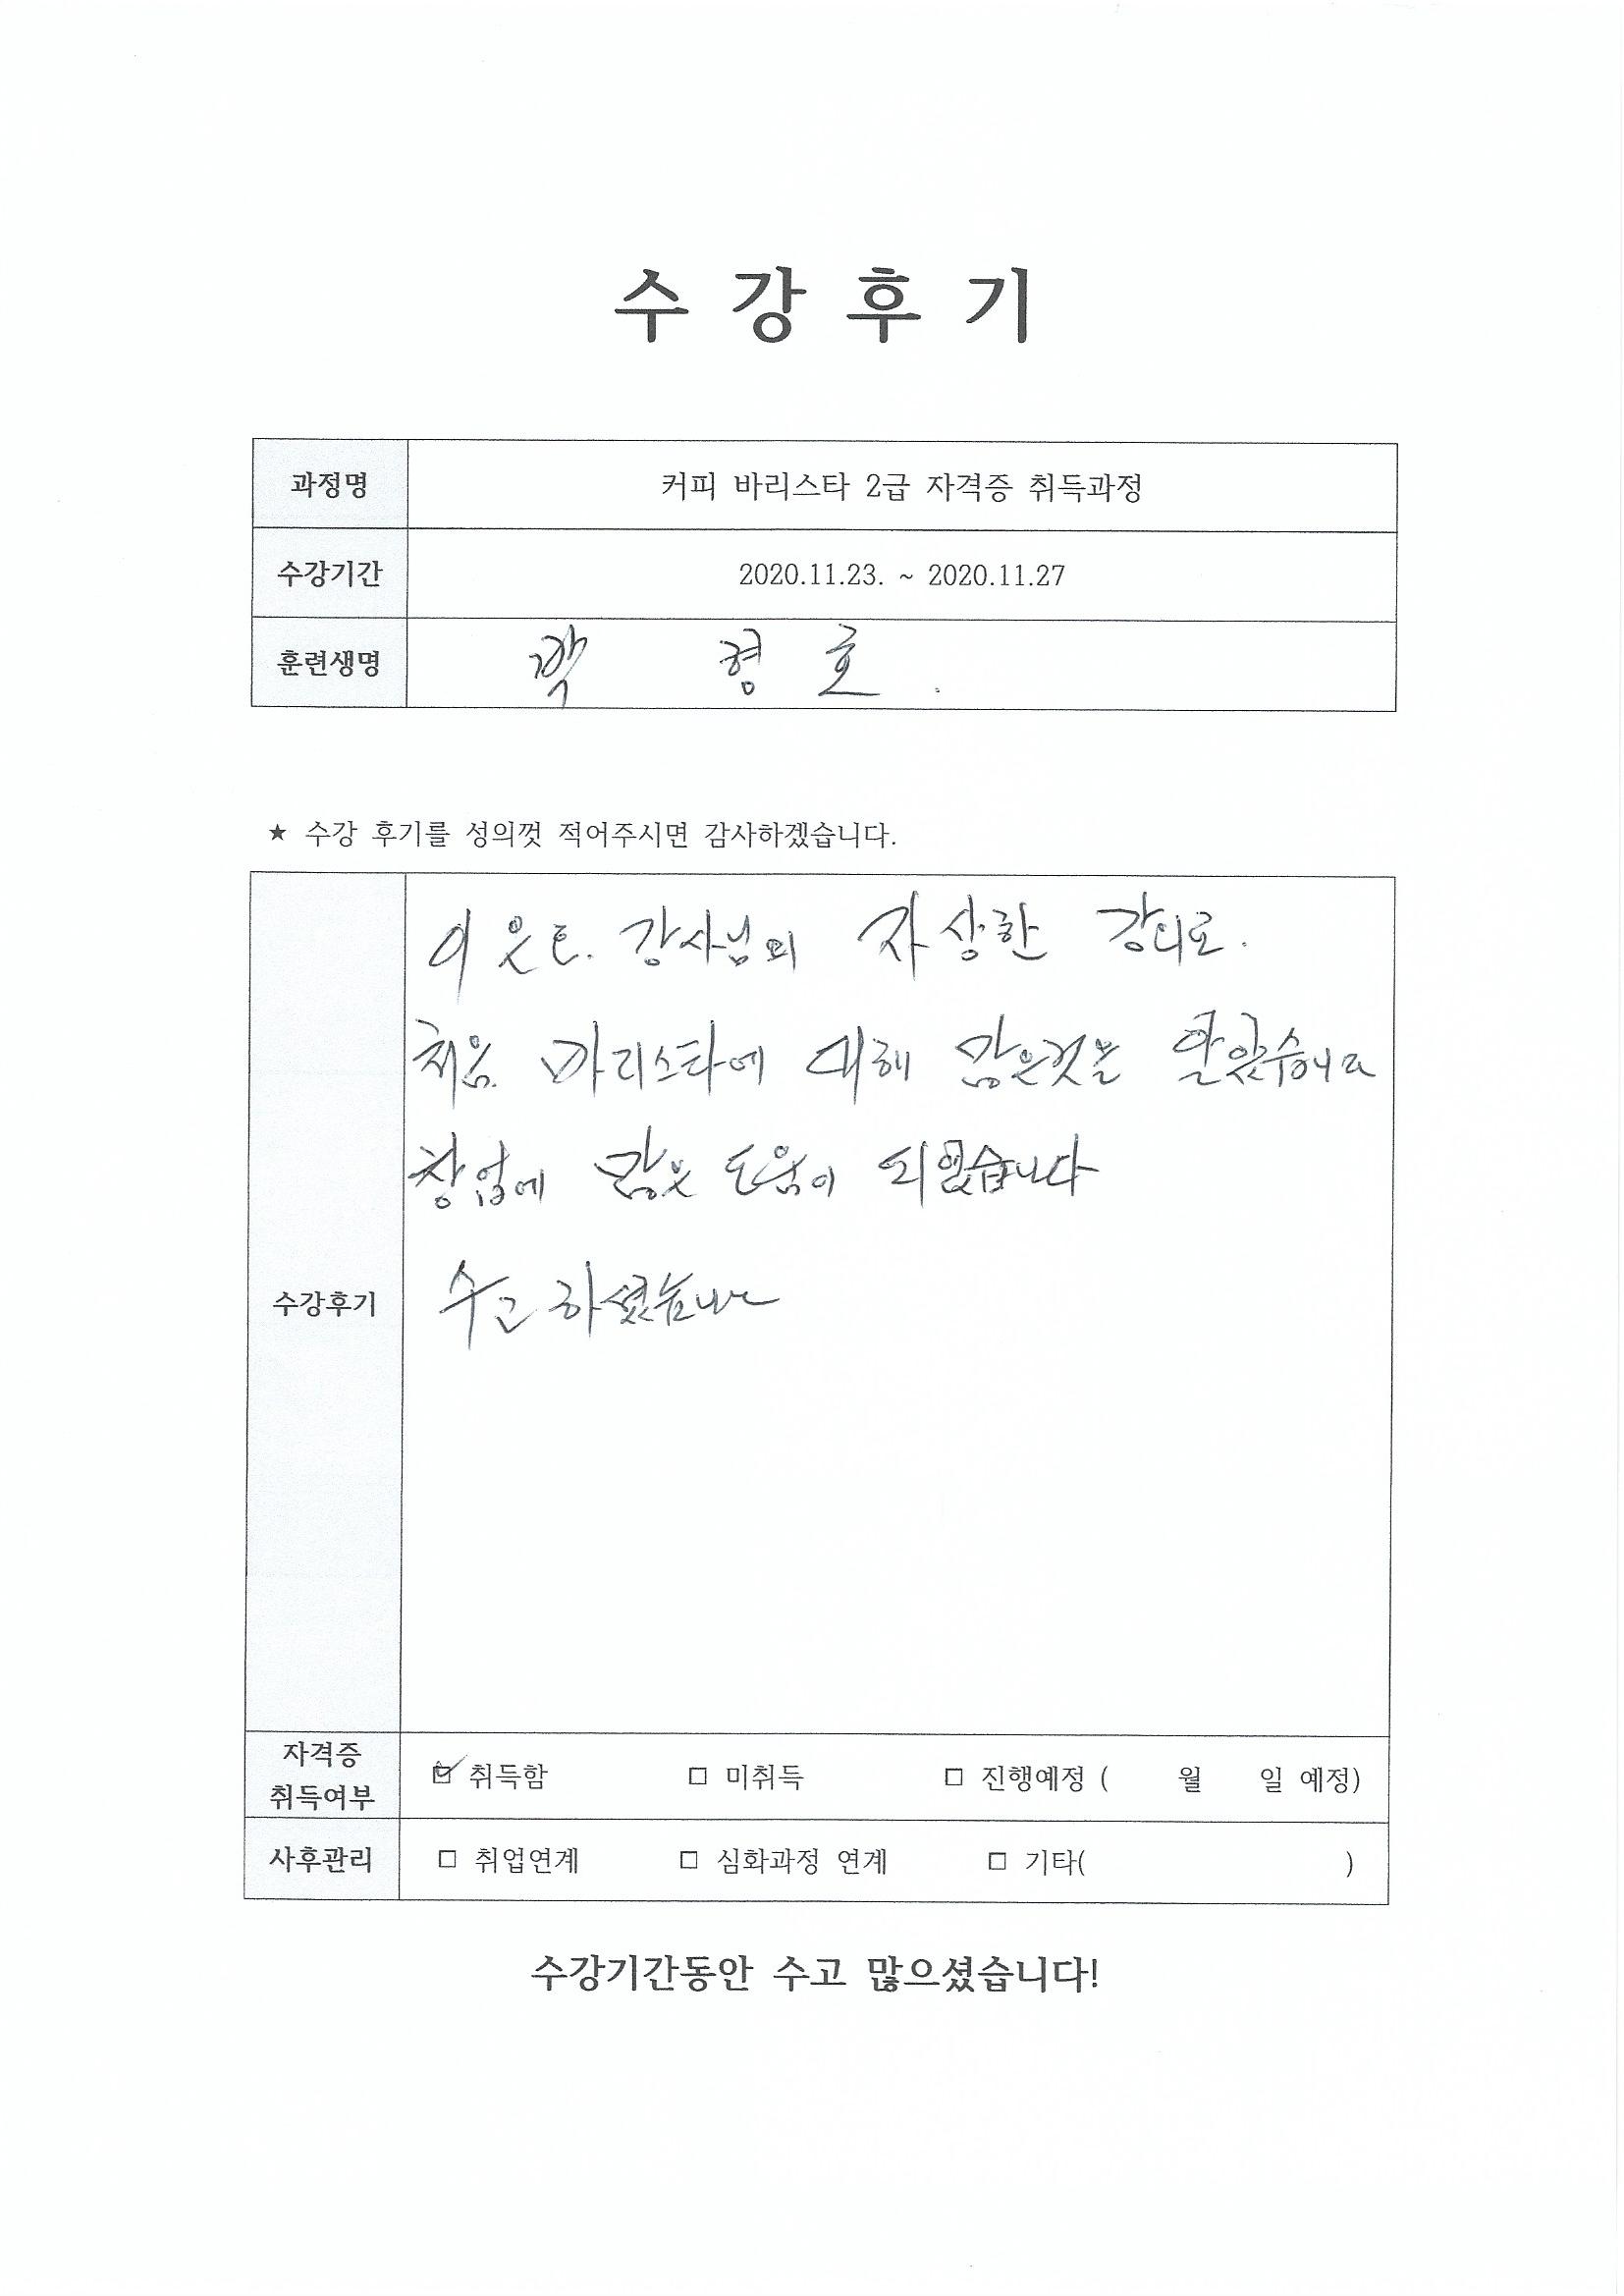 수 강 후 기
과정명 커피 바리스타 2급 자격증 취득과정
수강기간 2020.11.23. ~ 2020.11.27
훈련생명 곽 형 호 .
★ 수강 후기를 성의껏 적어주시면 감사하겠습니다.
수강후기
강사님의 자상한 강의로.
처음. 바리스타에 대해 많은것을
창업에 많은 도움이 되었습니다
수고 하셨습니다
자격증 취득여부 ☑ 취득함 □ 미취득 □ 진행예정 ( 월 일 예정)
사후관리 □ 취업연계 □ 심화과정 연계 □ 기타( )
수강기간동안 수고 많으셨습니다!